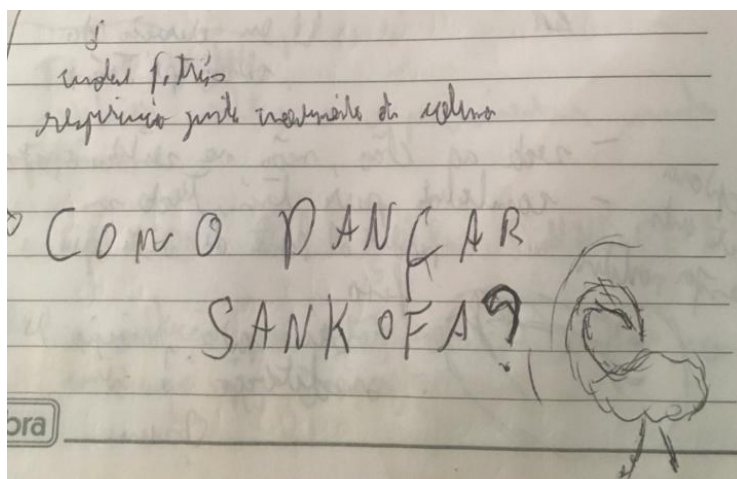 andar p. trás
respiração junto movimento da coluna
COMO DANÇAR
SANKOFA?
ora